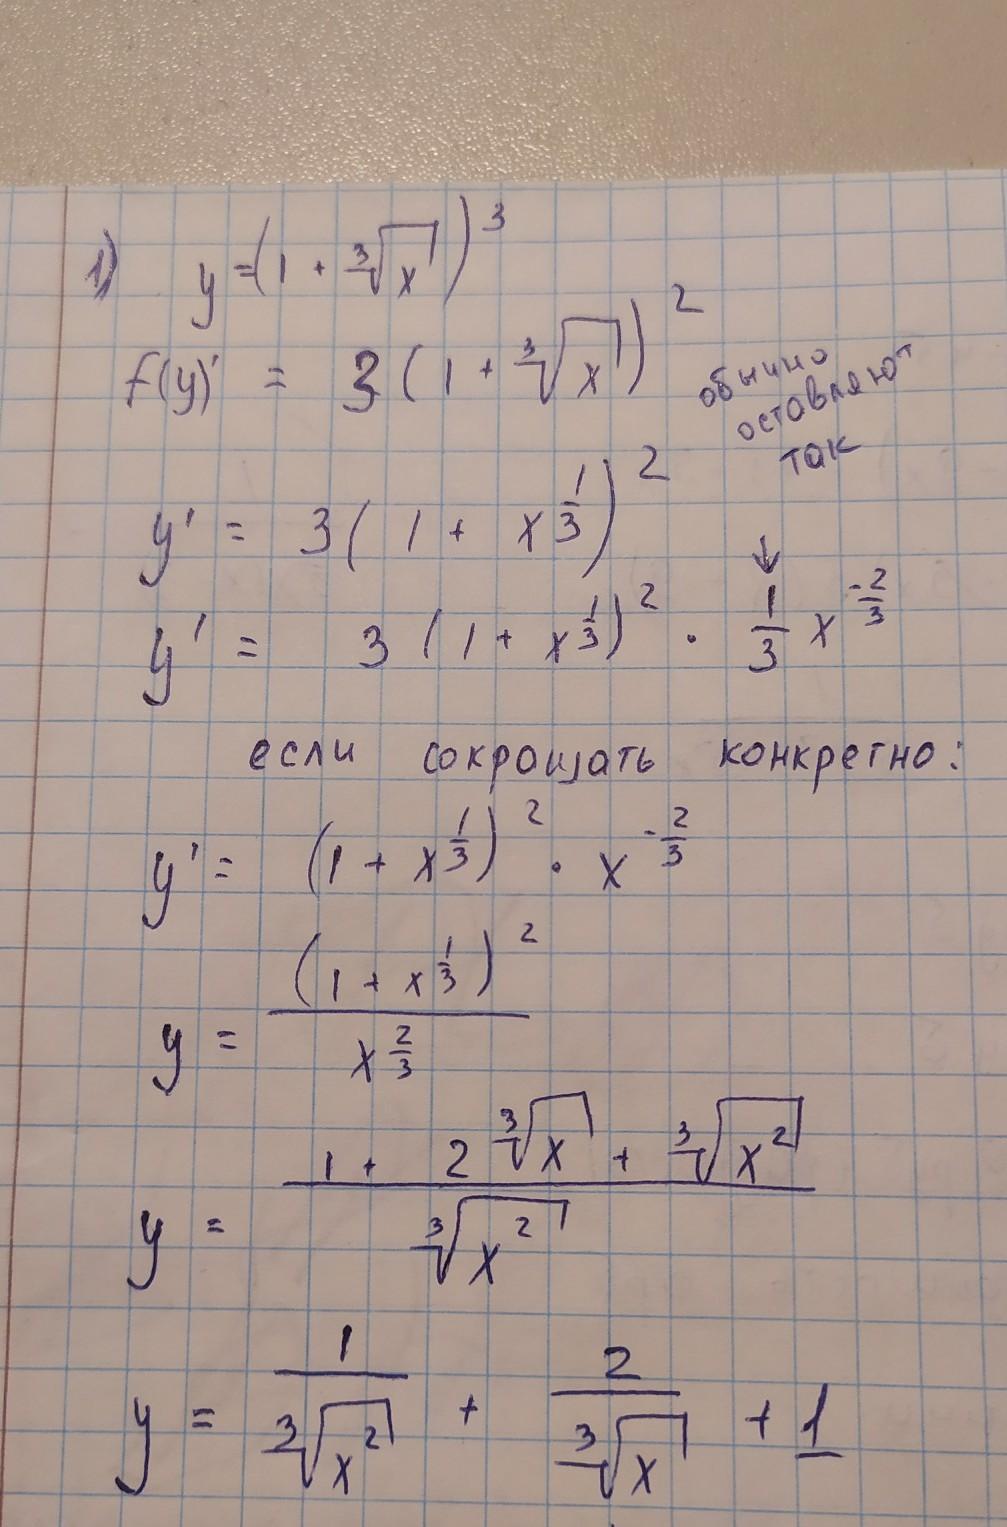 1) y = (1 + ∛x)³
f(y)' = 3(1 + ∛x)²
обычно
оставляют
так
y' = 3(1 + x^(1/3))²
↓
y' = 3(1 + x^(1/3))² · 1/3 x^(-2/3)
если сокращать конкретно:
y' = (1 + x^(1/3))² · x^(-2/3)
y = (1 + x^(1/3))² / x^(2/3)
y = (1 + 2∛x + ∛x²) / ∛x²
y = 1/∛x² + 2/∛x + 1